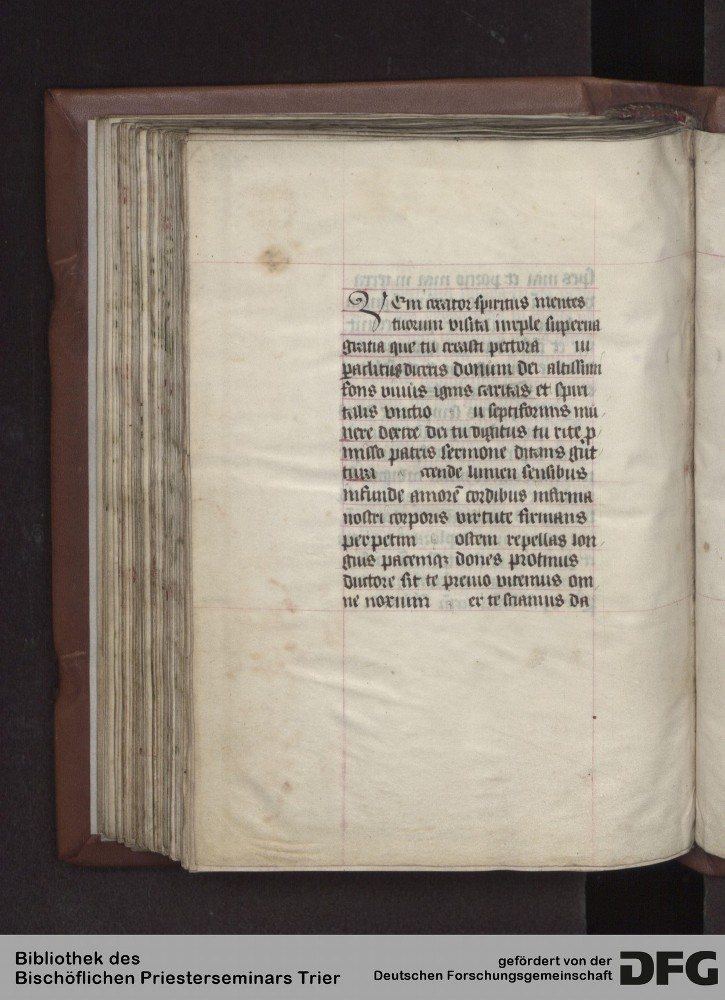 Veni creator spiritus mentes
tuorum visita imple superna
gratia que tu creasti pectora ui
paclitus diceris donum dei altissimi
fons viuus ignis caritas et spiri
talis vnctio u septiformis mu
nere dextre dei tu digitus tu rite p
misso patris sermone ditans gut
tura ccende lumen sensibus
infunde amorē cordibus infirma
nostri corporis virtute firmans
perpetim ostem repellas lon
gius pacemqꝫ dones protinus
ductore sit te preuio vitemus om
ne noxium er te sciamus da
Bibliothek des
Bischöflichen Priesterseminars Trier
gefördert von der
Deutschen Forschungsgemeinschaft
DFG